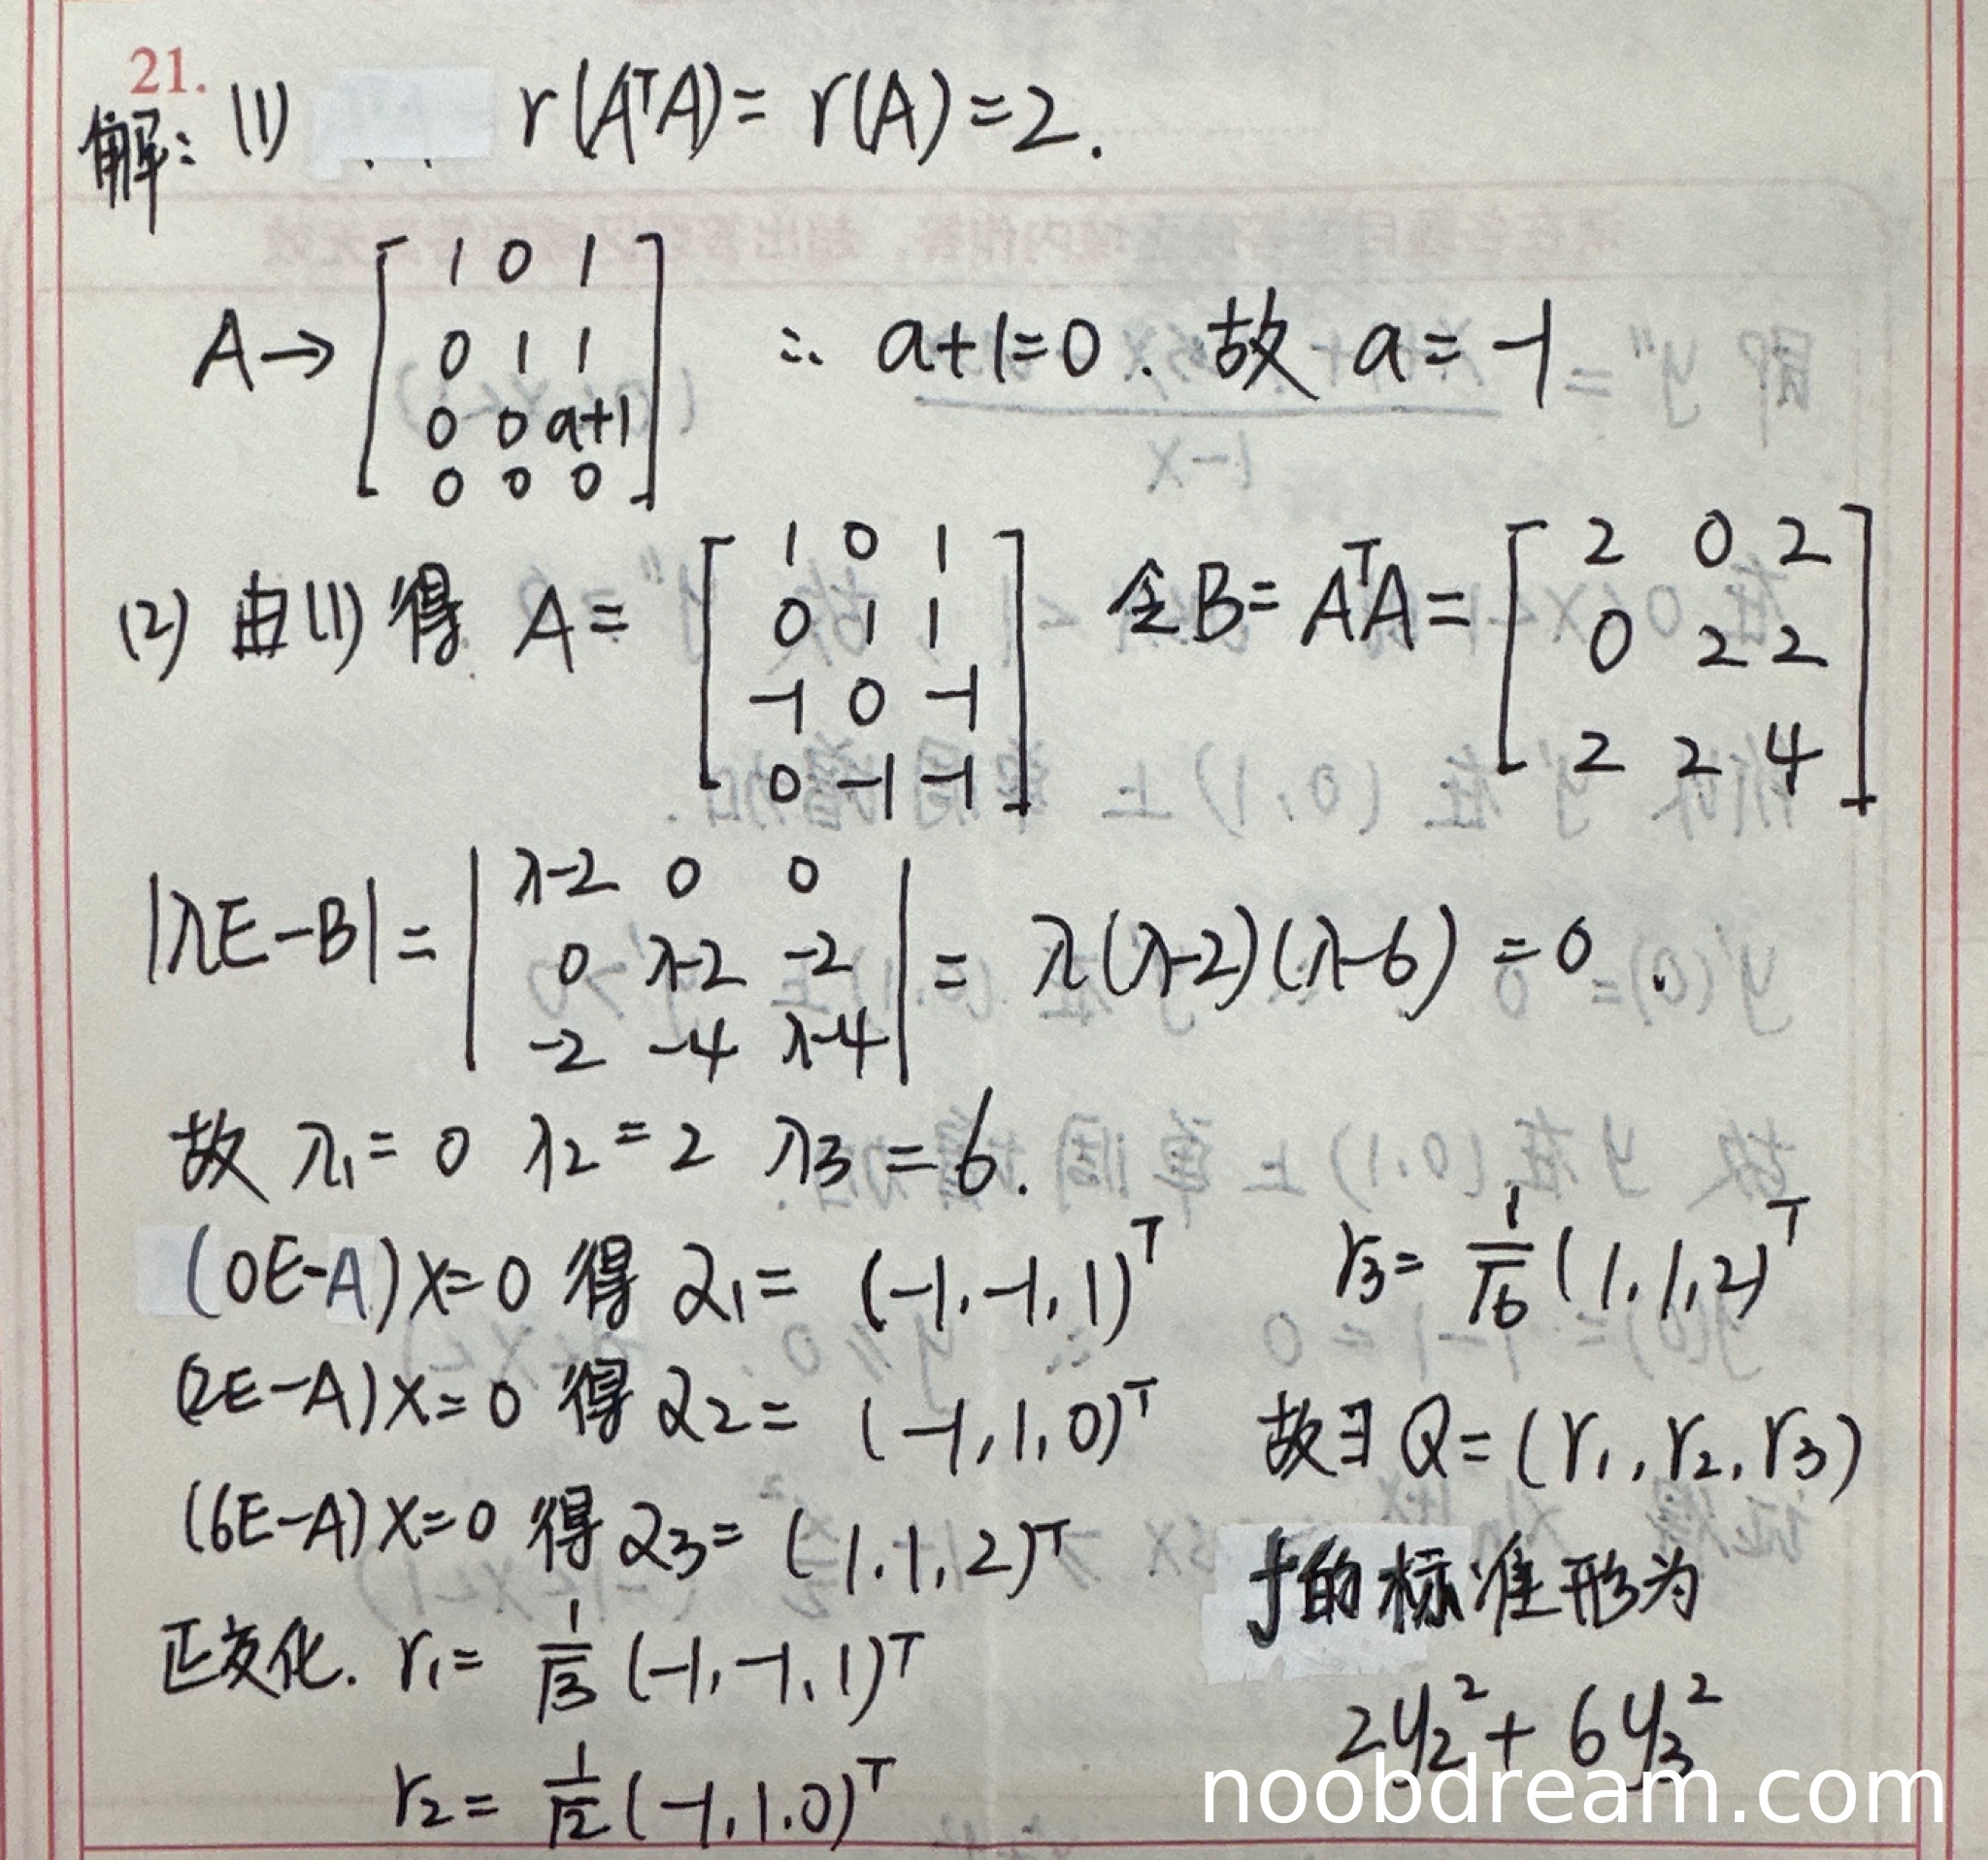 21.
解: (1) r(AᵀA) = r(A) = 2.
A → [1 0 1; 0 1 1; 0 0 a+1; 0 0 0] ∴ a+1=0. 故 a = -1
(2) 由(1)得 A = [1 0 1; 0 1 1; -1 0 -1; 0 -1 -1] 令B = AᵀA = [2 0 2; 0 2 2; 2 2 4]
|λE-B| = |λ-2 0 0; 0 λ-2 -2; -2 -4 λ-4| = λ(λ-2)(λ-6) = 0.
故 λ₁ = 0 λ₂ = 2 λ₃ = 6.
(0E-A)x=0 得 α₁ = (-1,-1,1)ᵀ
(2E-A)x=0 得 α₂ = (-1,1,0)ᵀ
(6E-A)x=0 得 α₃ = (1,1,2)ᵀ
正交化. r₁ = 1/√3 (-1,-1,1)ᵀ
r₂ = 1/√2 (-1,1,0)ᵀ
r₃ = 1/√6 (1,1,2)ᵀ
故∃ Q = (r₁, r₂, r₃)
f的标准形为
2y₂² + 6y₃²
noobdream.com